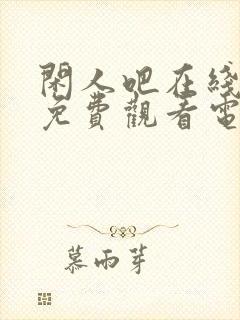 閑人吧在綫
免費觀看電
慕雨芽